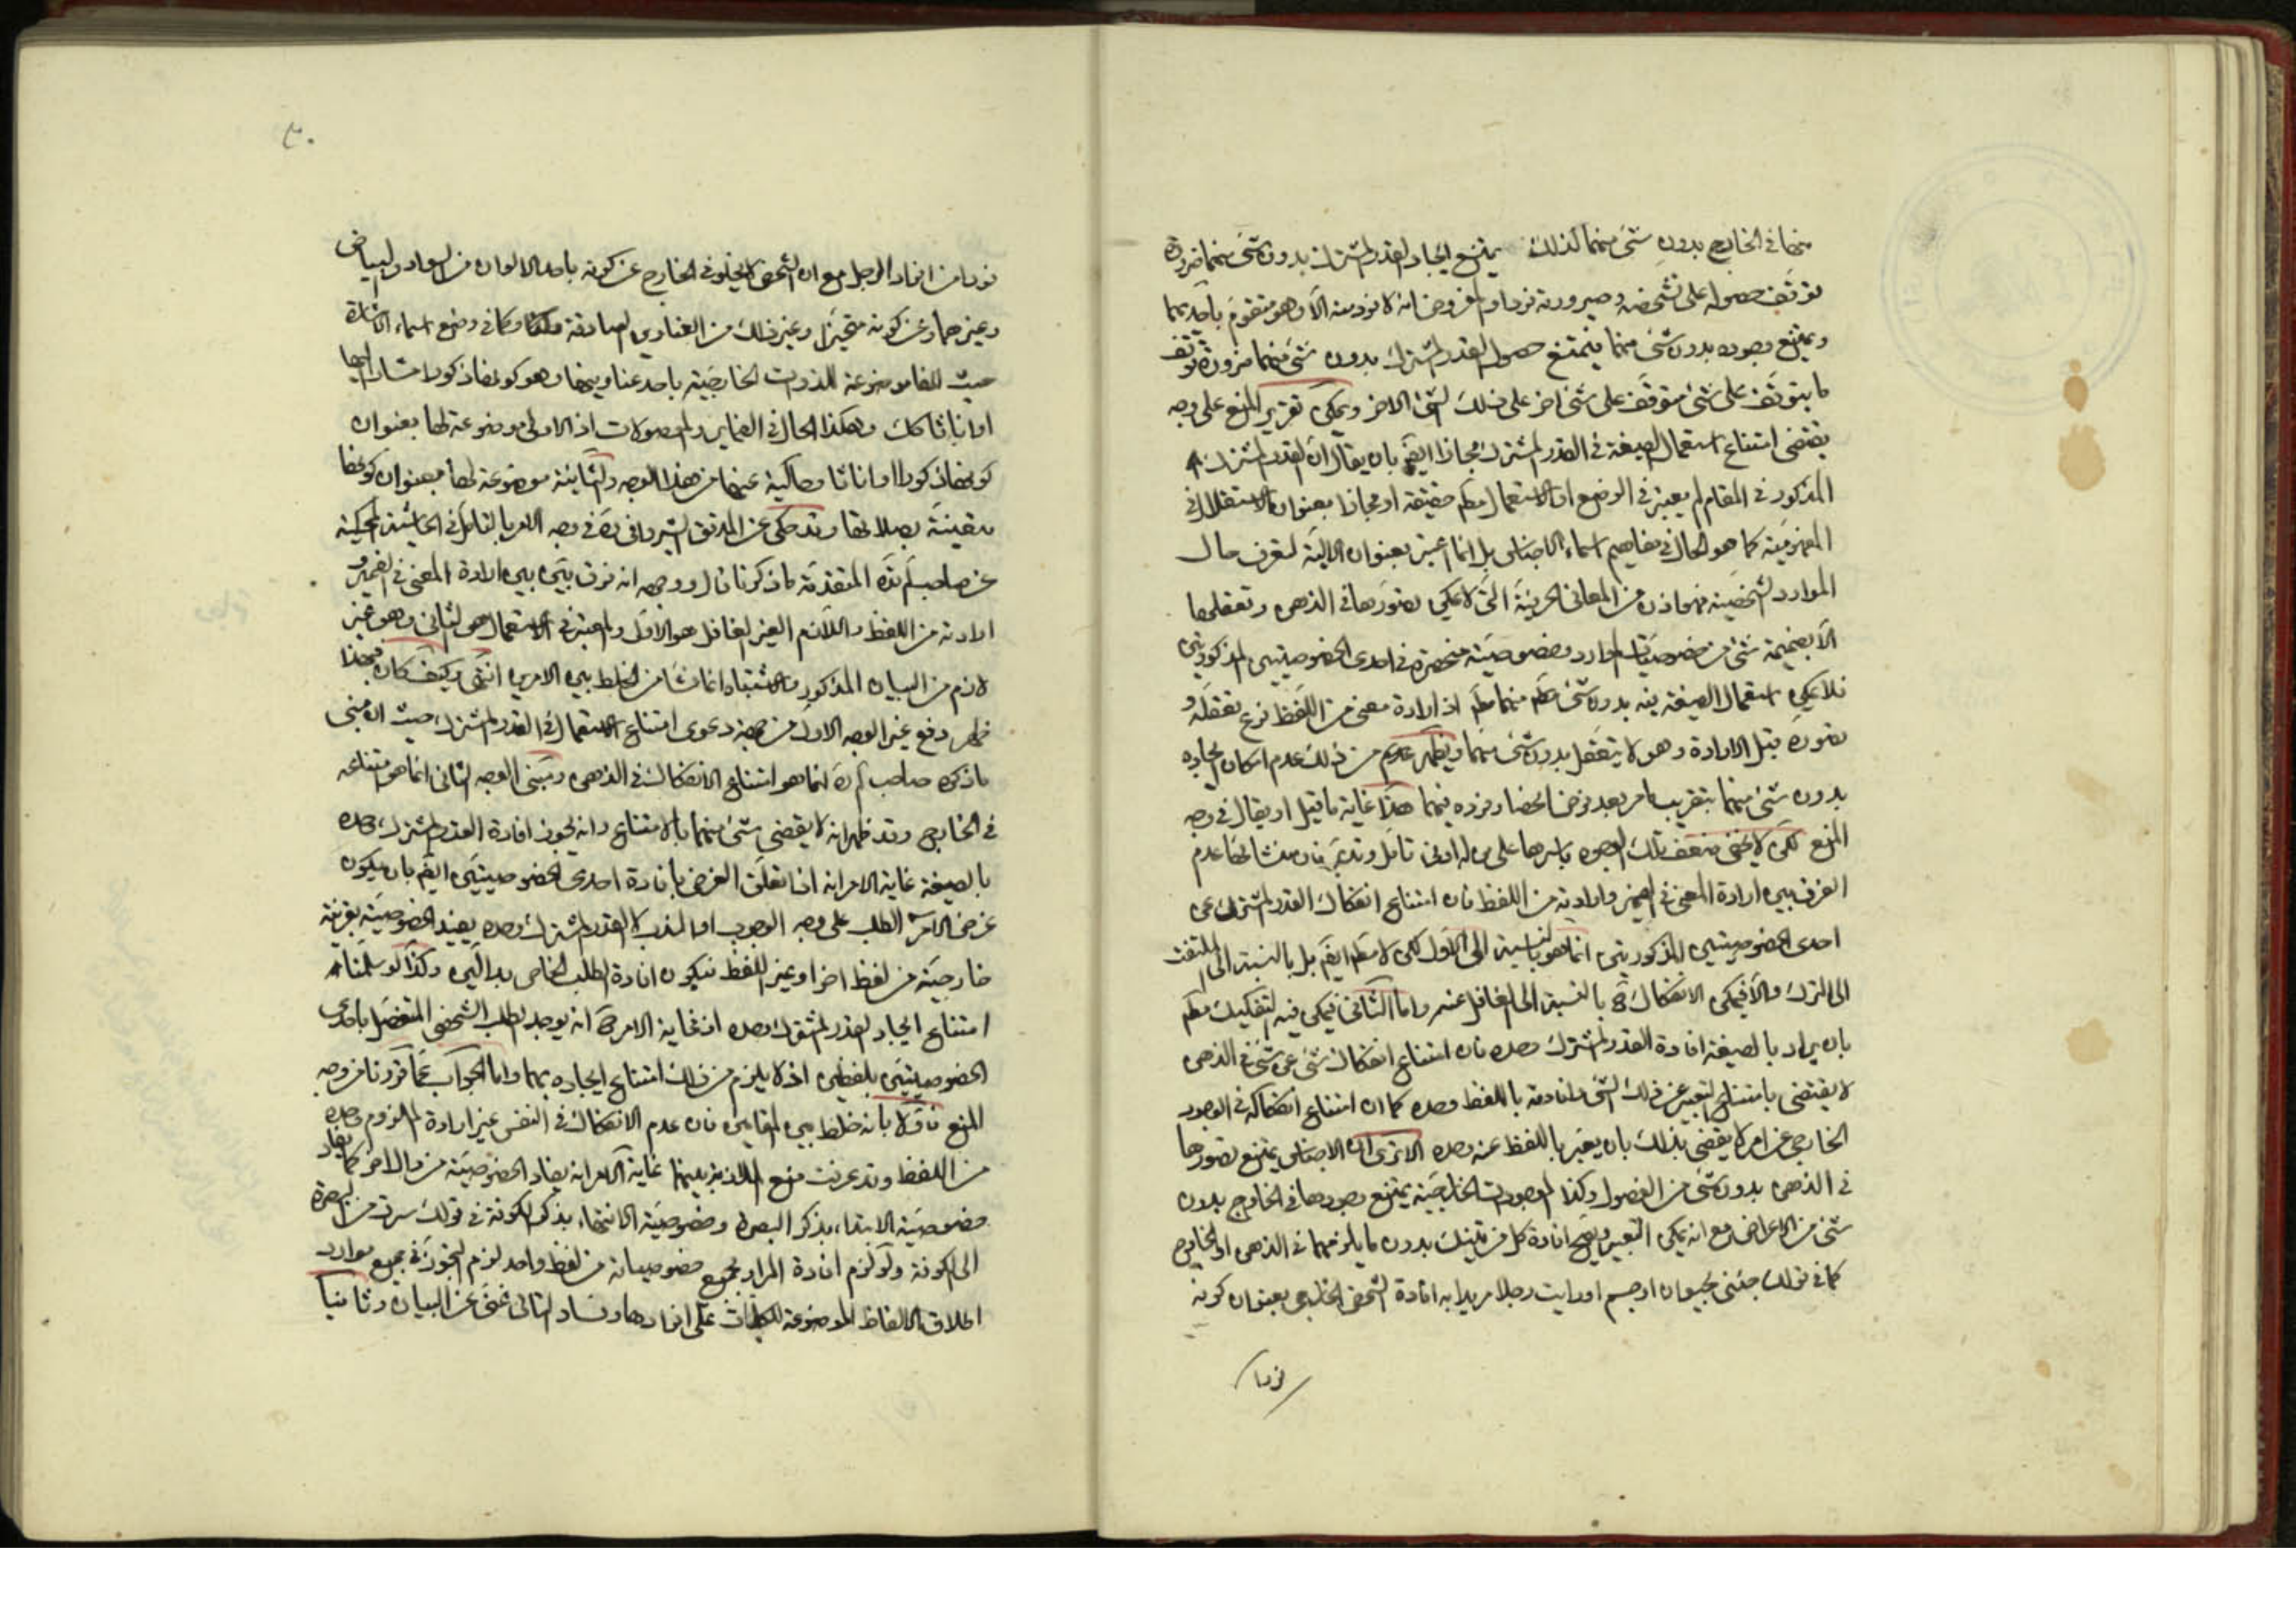 منهما في الخارج بدون شيء منهما كذلك يمتنع ايجاد القدر المشترك بدون شيء منهما ضرورة
توقف حصوله على تشخصه وصيرورته فردا والمفروض انه لا فرد منه الا وهو متقوم باحدهما
ويمتنع وجوده بدون شيء منهما فيمتنع حصول القدر المشترك بدون شيء منهما ضرورة توقف
ما يتوقف على شيء متوقف على شيء اخر على ذلك الشيء الاخر ويمكن تقرير المنع على وجه
يقتضي امتناع استعمال الصيغة في القدر المشترك مجازا ايضم بان يقال ان القدر المشترك
المذكور في المقام لم يعتبر في الوضع او الاستعمال مطم حقيقة او مجازا بعنوان الاستقلال في
المفهومية كما هو الحال في مفاهيم اسماء الاجناس بل انما اعتبر بعنوان الالية لتعرف حال
الموارد الشخصية فهو اذن من المعاني الحرفية التي لا يمكن تصورها في الذهن وتعقلها
الا بضميمة شيء من خصوصيات الموارد وخصوصيته منحصرة في احدى الخصوصيتين المذكورتين
فلا يمكن استعمال الصيغة فيه بدون شيء منهما مطم اذ ارادة معنى من اللفظ فرع تعقله و
تصوره قبل الارادة وهو لا يتعقل بدون شيء منهما ويظهر من ذلك عدم امكان ايجاده
بدون شيء منهما بتقريب ما مر بعد فرض انحصار فرده فيهما هذا غاية ما قيل او يقال في وجه
المنع لكن لا يخفى ضعف تلك الوجوه باسرها على من له ادنى تامل وتدبر فان منشائها عدم
الفرق بين ارادة المعنى في الضمير وارادته من اللفظ فان امتناع انفكاك القدر المشترك عن
احدى الخصوصيتين المذكورتين انما هو بالنسبة الى الاول لكن لا مطم ايضم بل بالنسبة الى الملتفت
الى الترك والا فيمكن الانفكاك ح بالنسبة الى الغافل عنه واما الثاني فيمكن فيه التفكيك مطم
بان يراد بالصيغة افادة القدر المشترك وحده فان امتناع انفكاك شيء عن شيء في الذهن
لا يقتضي بامتناع التعبير عن ذلك الشيء وافادته باللفظ وحده كما ان امتناع انفكاكه في الوجود
الخارجي عن امر لا يقضي بذلك بان يعبر باللفظ عنه وحده الا ترى ان الاجناس يمتنع تصورها
في الذهن بدون شيء من الفصول وكذا الموجودات الخارجية يمتنع وجودها في الخارج بدون
شيء من الاعراض مع انه يمكن التعبير ويصح افادة كل من تينك بدون ما يلزمهما في الذهن او الخارج
كما في قولك جئني بحيوان او جسم او رايت رجلا مريدا به افادة الشخص الخارجي بعنوان كونه
فردا
فردا من افراد الرجل مع ان الشخص لا يخلو في الخارج عن كونه باحد الالوان من السواد والبياض
وغيرهما وعن كونه متحيزا وغير ذلك من العناوين الصادقة وكما في وضع اسماء الاشارة
حيث انها موضوعة للذوات الخارجية باحد عناوينها وهو كونها ذكورا مشارا اليها
او اناثا كك وهكذا الحال في الضماير والموصولات اذ الاولى موضوعة لها بعنوان
كونها ذكورا او اناثا وحاكية عنها من هذا الوجه والثانية موضوعة لها بعنوان كونها
متعينة بصلاتها وقد حكى عن المدقق الشيرواني ره في وجه الامر بالتامل في الحاشية المحكية
عن صاحب لم ره المتقدمة ما ذكرنا قال ووجهه انه فرق بين بين ارادة المعنى في الضمير و
ارادته من اللفظ واللازم الغير الغافل هو الاول والمعتبر في الاستعمال هو الثاني وهو غير
لازم من البيان المذكور والاشتباه انما نشا من الخلط بين الامرين انتهى وكيف كان فبهذا
ظهر دفع غير الوجه الاول من جهة دعوى امتناع الاستعمال في القدر المشترك حيث ان مبنى
ما ذكره صاحب لم ره انما هو امتناع الانفكاك في الذهن ومبنى الوجه الثاني انما هو امتناعه
في الخارج وقد ظهر انه لا يقضي شيء منهما بالامتناع وانه يجوز افادة القدر المشترك وحده
بالصيغة غاية الامر انه اذا تعلق الغرض بافادة احدى الخصوصيتين ايضم بان يكون
غرض الامر الطلب على وجه الوجوب او الندب لا القدر المشترك وحده يفيد الخصوصية بقرينة
خارجية من لفظ اخر او غير اللفظ فيكون افادة الطلب الخاص بدالين وكذا لو سلمنا
امتناع ايجاد القدر المشترك وحده اذ غاية الامر ح انه يوجد الطلب الشخصي المتفصل باحدى
الخصوصيتين بلفظين اذ لا يلزم من ذلك امتناع ايجاده بهما واما الجواب عما قررنا من وجه
المنع فاولا بانه خلط بين المقامين فان عدم الانفكاك في النفس غير ارادة الملزوم وحده
من اللفظ وقد عرفت منع الملازمة بينهما غاية الامر انه يفاد الخصوصية من دال اخر كما يفاد
خصوصية الابتداء بذكر البصرة وخصوصية الانتهاء بذكر الكوفة في قولك سرت من البصرة
الى الكوفة ولو لزم افادة المراد بجميع خصوصياته من لفظ واحد لزم التجوز في جميع موارد
اطلاق الالفاظ الموضوعة للكليات على افرادها وفساد التالي غني عن البيان وثانيا